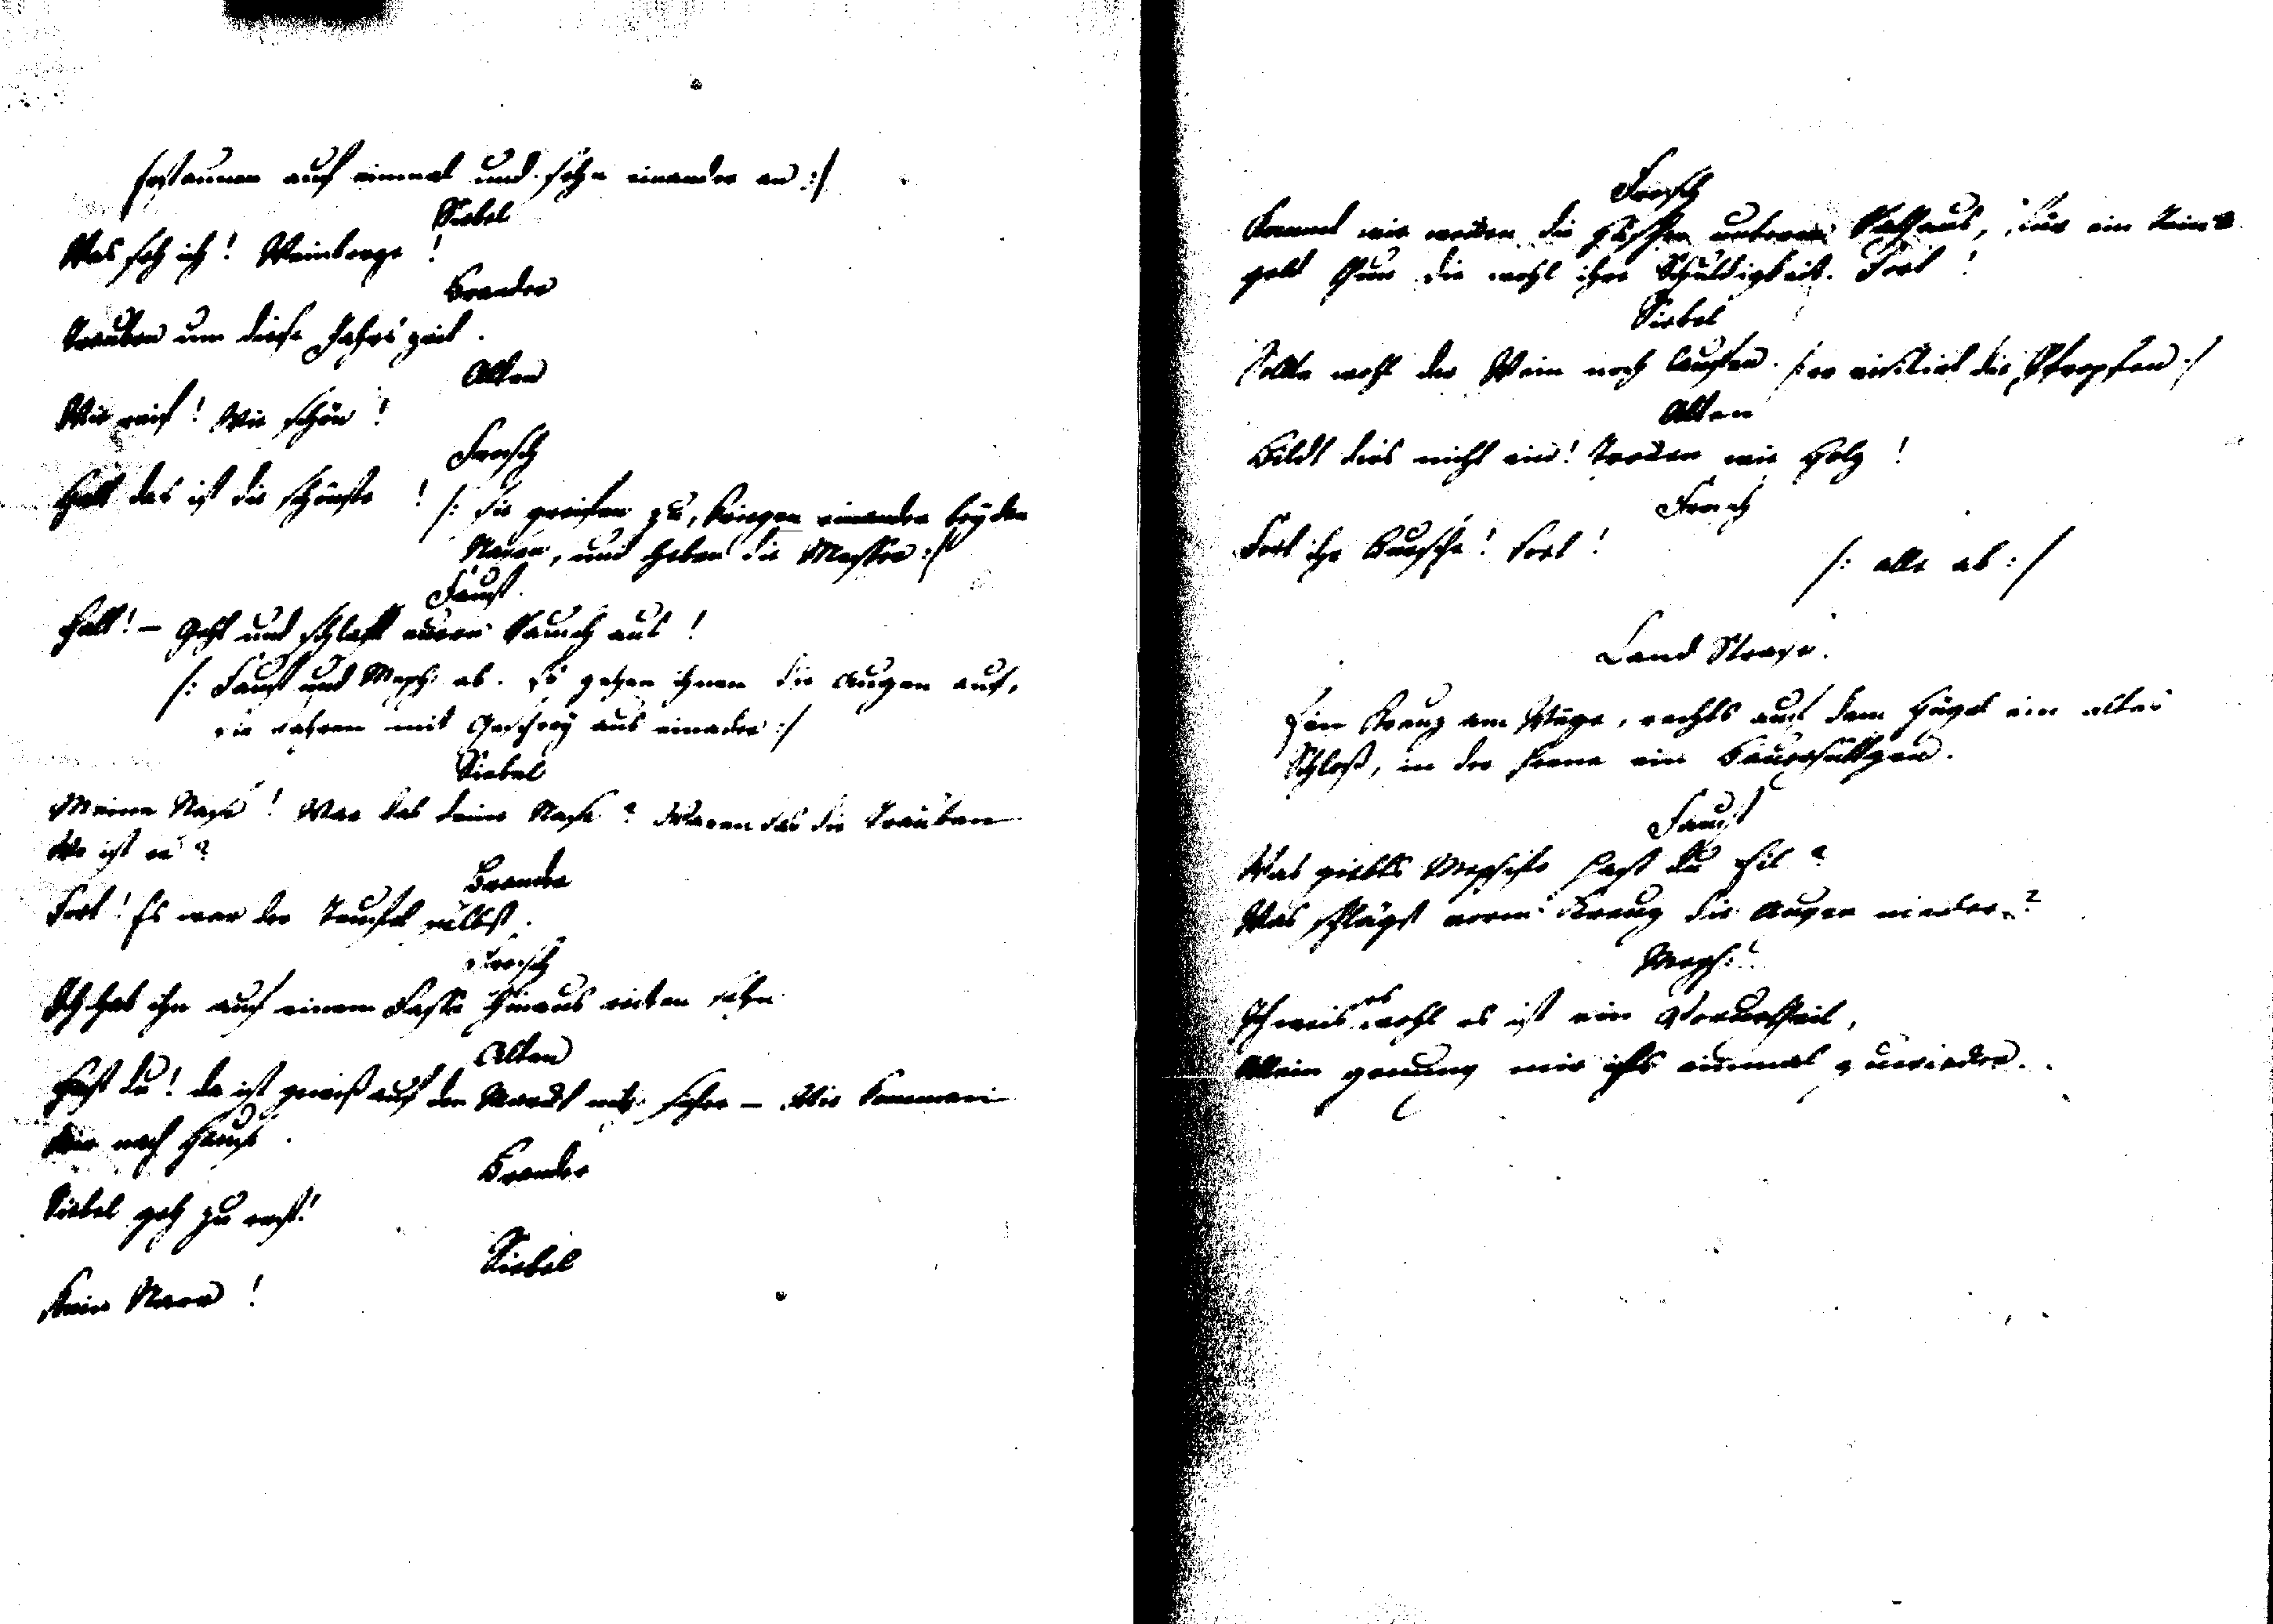 erstaunen auf einmal und sehn einander an :/
Siebel
Was seh ich! Weinberge!
Brander
Trauben um diese Jahrs zeit.
Alten
Wie reif! Wie schön!
Frosch
Halt das ist die schönste! /: sie greifen zu, kriegen einander bey den
Nasen, und heben die Messer :/
Faust.
Halt! – Geht und schlaft euern Rausch aus!
/: Faust und Meph: ab. Es gehen ihnen die Augen auf,
sie fahren mit Geschrey aus einader :/
Siebel
Meine Nase! War das deine Nase? Waren das die Trauben
Wo ist er?
Brander
Fort! Es war der Teufel selbst.
Frosch
Ich hab ihn auf einem Fasse hinaus reiten sehn
Alten
Hast du! da ist gewiß auf dem Marckt nit sicher – Wie kommen
wir nach Hause.
Brander
Siebel geh zu erst!
Siebel
Kein Narr!
Frosch
Kommt wir wecken die Häscher unterm Rathaus, für ein Trinck
geld thun die wohl ihre Schuldigkeit. Fort!
Siebel
Sollte wohl der Wein noch laufen. /: er visitirt die Pfropfen :/
Alten
Bildt dirs nicht ein! Trocken wie Holz!
Frosch
Fort ihr Bursche! Fort!
/: alle ab :/
Land Strase.
Ein Kreuz am Wege, rechts auf dem Hügel ein altes
Schloß, in der Ferne ein Bauerhüttgen.
Faust
Was giebts Mephisto hast du Eil?
Was schlägst vorm Kreuz die Augen nieder?
Meph:
Ich weis es wohl es ist ein Vorurtheil,
Allein genung mir ists einmal zuwieder.